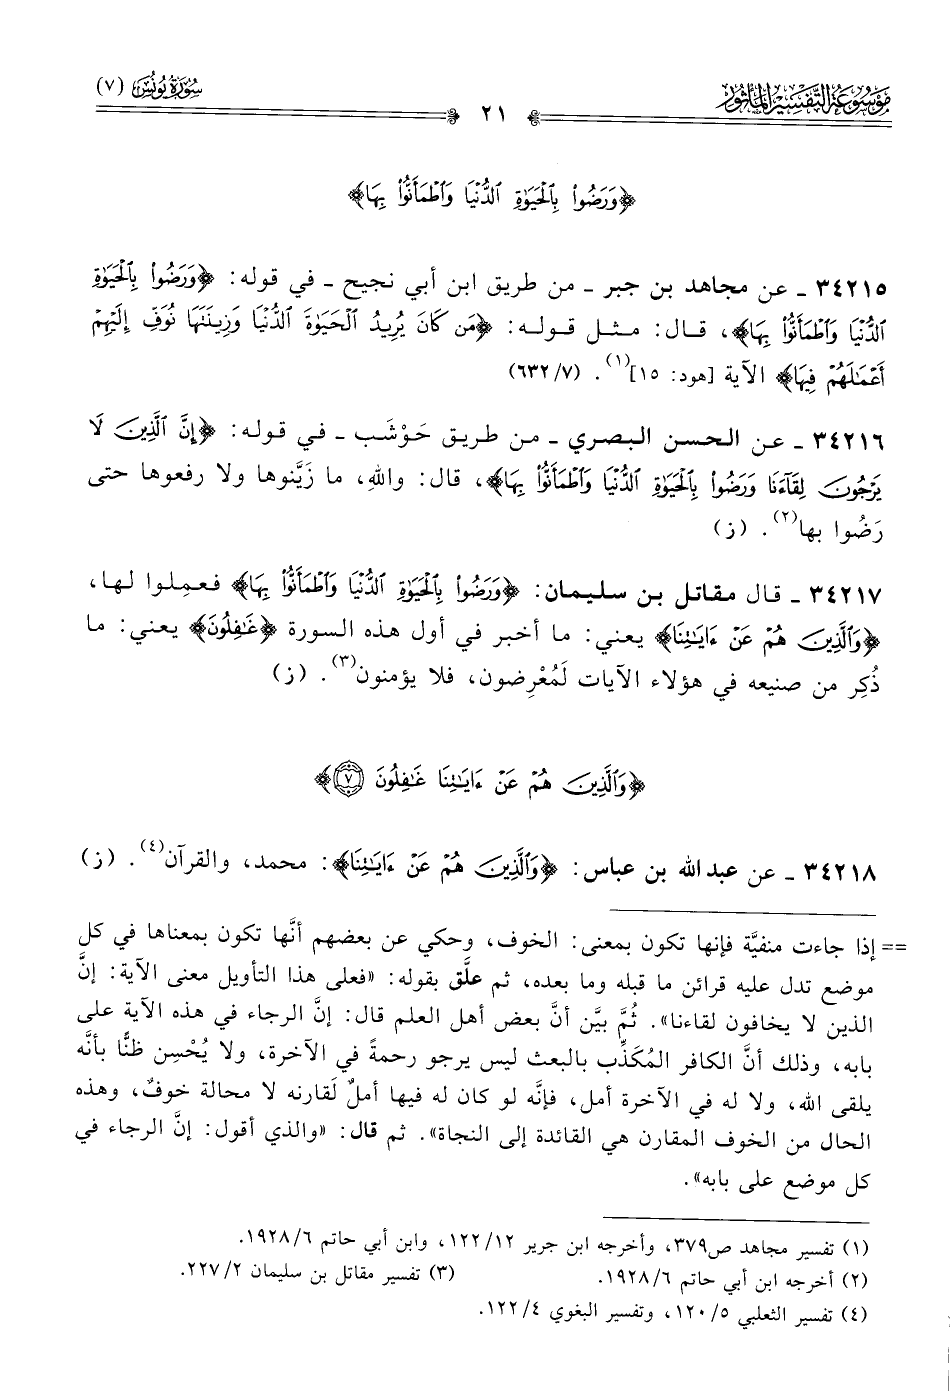 مَوْسُوعَة التَّفْسِيْر المَأْثُور
٢١
سُورَة يُونُس (٧)
﴿وَرَضُوا۟ بِٱلْحَيَوٰةِ ٱلدُّنْيَا وَٱطْمَأَنُّوا۟ بِهَا﴾
٣٤٢١٥ ـ عن مجاهد بن جبر ـ من طريق ابن أبي نجيح ـ في قوله: ﴿وَرَضُوا۟ بِٱلْحَيَوٰةِ
ٱلدُّنْيَا وَٱطْمَأَنُّوا۟ بِهَا﴾، قال: مثل قوله: ﴿مَن كَانَ يُرِيدُ ٱلْحَيَوٰةَ ٱلدُّنْيَا وَزِينَتَهَا نُوَفِّ إِلَيْهِمْ
أَعْمَـٰلَهُمْ فِيهَا﴾ الآية [هود: ١٥](١). (٧/ ٦٣٢)
٣٤٢١٦ ـ عن الحسن البصري ـ من طريق حَوْشَب ـ في قوله: ﴿إِنَّ ٱلَّذِينَ لَا
يَرْجُونَ لِقَآءَنَا وَرَضُوا۟ بِٱلْحَيَوٰةِ ٱلدُّنْيَا وَٱطْمَأَنُّوا۟ بِهَا﴾، قال: واللهِ، ما زَيَّنوها ولا رفعوها حتى
رَضُوا بها(٢). (ز)
٣٤٢١٧ ـ قال مقاتل بن سليمان: ﴿وَرَضُوا۟ بِٱلْحَيَوٰةِ ٱلدُّنْيَا وَٱطْمَأَنُّوا۟ بِهَا﴾ فعمِلوا لها،
﴿وَٱلَّذِينَ هُمْ عَنْ ءَايَـٰتِنَا﴾ يعني: ما أخبر في أول هذه السورة ﴿غَـٰفِلُونَ﴾ يعني: ما
ذُكِر من صنيعه في هؤلاء الآيات لَمُعْرِضون، فلا يؤمنون(٣). (ز)
﴿وَٱلَّذِينَ هُمْ عَنْ ءَايَـٰتِنَا غَـٰفِلُونَ ٧﴾
٣٤٢١٨ ـ عن عبد الله بن عباس: ﴿وَٱلَّذِينَ هُمْ عَنْ ءَايَـٰتِنَا﴾: محمد، والقرآن(٤). (ز)
== إذا جاءت منفيَّة فإنها تكون بمعنى: الخوف، وحكي عن بعضهم أنَّها تكون بمعناها في كل
موضع تدل عليه قرائن ما قبله وما بعده، ثم علَّق بقوله: «فعلى هذا التأويل معنى الآية: إنَّ
الذين لا يخافون لقاءنا». ثُمَّ بيَّن أنَّ بعض أهل العلم قال: إنَّ الرجاء في هذه الآية على
بابه، وذلك أنَّ الكافر المُكَذِّب بالبعث ليس يرجو رحمةً في الآخرة، ولا يُحْسِن ظنًّا بأنَّه
يلقى الله، ولا له في الآخرة أمل، فإنَّه لو كان له فيها أملٌ لَقارنه لا محالة خوفٌ، وهذه
الحال من الخوف المقارن هي القائدة إلى النجاة». ثم قال: «والذي أقول: إنَّ الرجاء في
كل موضع على بابه».
(١) تفسير مجاهد ص٣٧٩، وأخرجه ابن جرير ١٢/ ١٢٢، وابن أبي حاتم ٦/ ١٩٢٨.
(٢) أخرجه ابن أبي حاتم ٦/ ١٩٢٨. (٣) تفسير مقاتل بن سليمان ٢/ ٢٢٧.
(٤) تفسير الثعلبي ٥/ ١٢٠، وتفسير البغوي ٤/ ١٢٢.